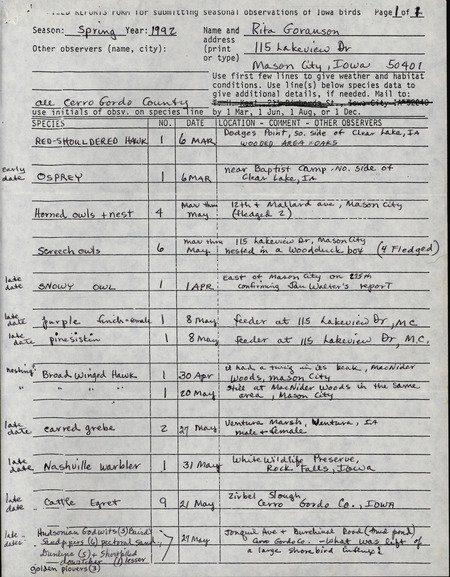 FIELD REPORTS FORM for submitting seasonal observations of Iowa birds Page 1 of 1
Season: Spring Year: 1992 Name and Rita Goranson
Other observers (name, city): address
(print 115 Lakeview Dr
or type)
Mason City, Iowa 50401
Use first few lines to give weather and habitat
conditions. Use line(s) below species data to
give additional details, if needed. Mail to:
all Cerro Gordo County
use initials of obsv. on species line by 1 Mar, 1 Jun, 1 Aug, or 1 Dec.
SPECIES NO. DATE LOCATION - COMMENT - OTHER OBSERVERS
RED-SHOULDERED HAWK 1 6 MAR Dodges Point, so. side of Clear Lake, IA
WOODED AREA OAKS
Early date OSPREY 1 6 MAR near Baptist Camp, No. side of
Clear Lake, IA
Horned owls + nest 4 Mar thru May 12th + Mallard ave; Mason City
(fledged 2)
Screech owls 6 mar thru May 115 Lakeview Dr, Mason City
nested in a Woodduck box (4 Fledged)
late date SNOWY OWL 1 1 APR East of Mason City on
confirming Jan Walter's report
late date purple finch-female 1 8 May feeder at 115 Lakeview Dr, M.C.
late date pine siskin 1 8 May feeder at 115 Lakeview Dr, M.C.
nesting? Broad Winged Hawk 1 30 Apr it had a twig in its beak, MacNider
Woods, Mason City
" " " 1 20 May still at MacNider Woods in the same
area, Mason City
late date earred grebe 2 27 May Ventura Marsh, Ventura, IA
male + female
late date Nashville warbler 1 31 May White Wildlife Preserve,
Rock Falls, Iowa
late date Cattle Egret 9 21 May Zirbel Slough
Cerro Gordo Co., IOWA
late dates Hudsonian Godwits (3) Baird 21 May Jonquil Ave + Burchinal Road (mud pond)
Sandpipers (6) pectoral sand. Cerro Gordo Co. - What was left of
Dunlins (5) + Shortbilled a large shorebird influx!
dowitcher (1) lesser
golden plovers (3)